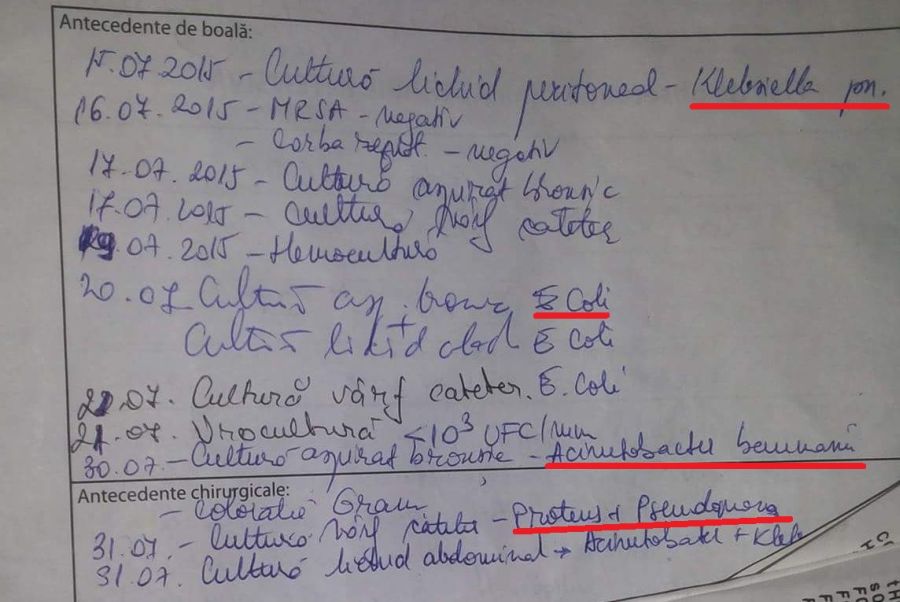 Antecedente de boală:
15.07.2015 - Cultură lichid peritoneal - Klebsiella pn.
16.07.2015 - MRSA - negativ
- negativ
17.07.2015 - Cultură aspirat bronșic
17.07.2015 - Cultură vârf cateter
19.07.2015 - Hemocultură
20.07 Cultură asp. bronș E Coli
Cultură lichid abd E Coli
21.07. Cultură vârf cateter. E. Coli
21.07. Urocultură <10³ UFC/mm
30.07. - Cultură aspirat bronșic - Acinetobacter baumanii
Antecedente chirurgicale:
- Colorație Gram
31.07. - Cultură vârf cateter - Proteus + Pseudomona
31.07. Cultură lichid abdominal → Acinetobacter + Kleb